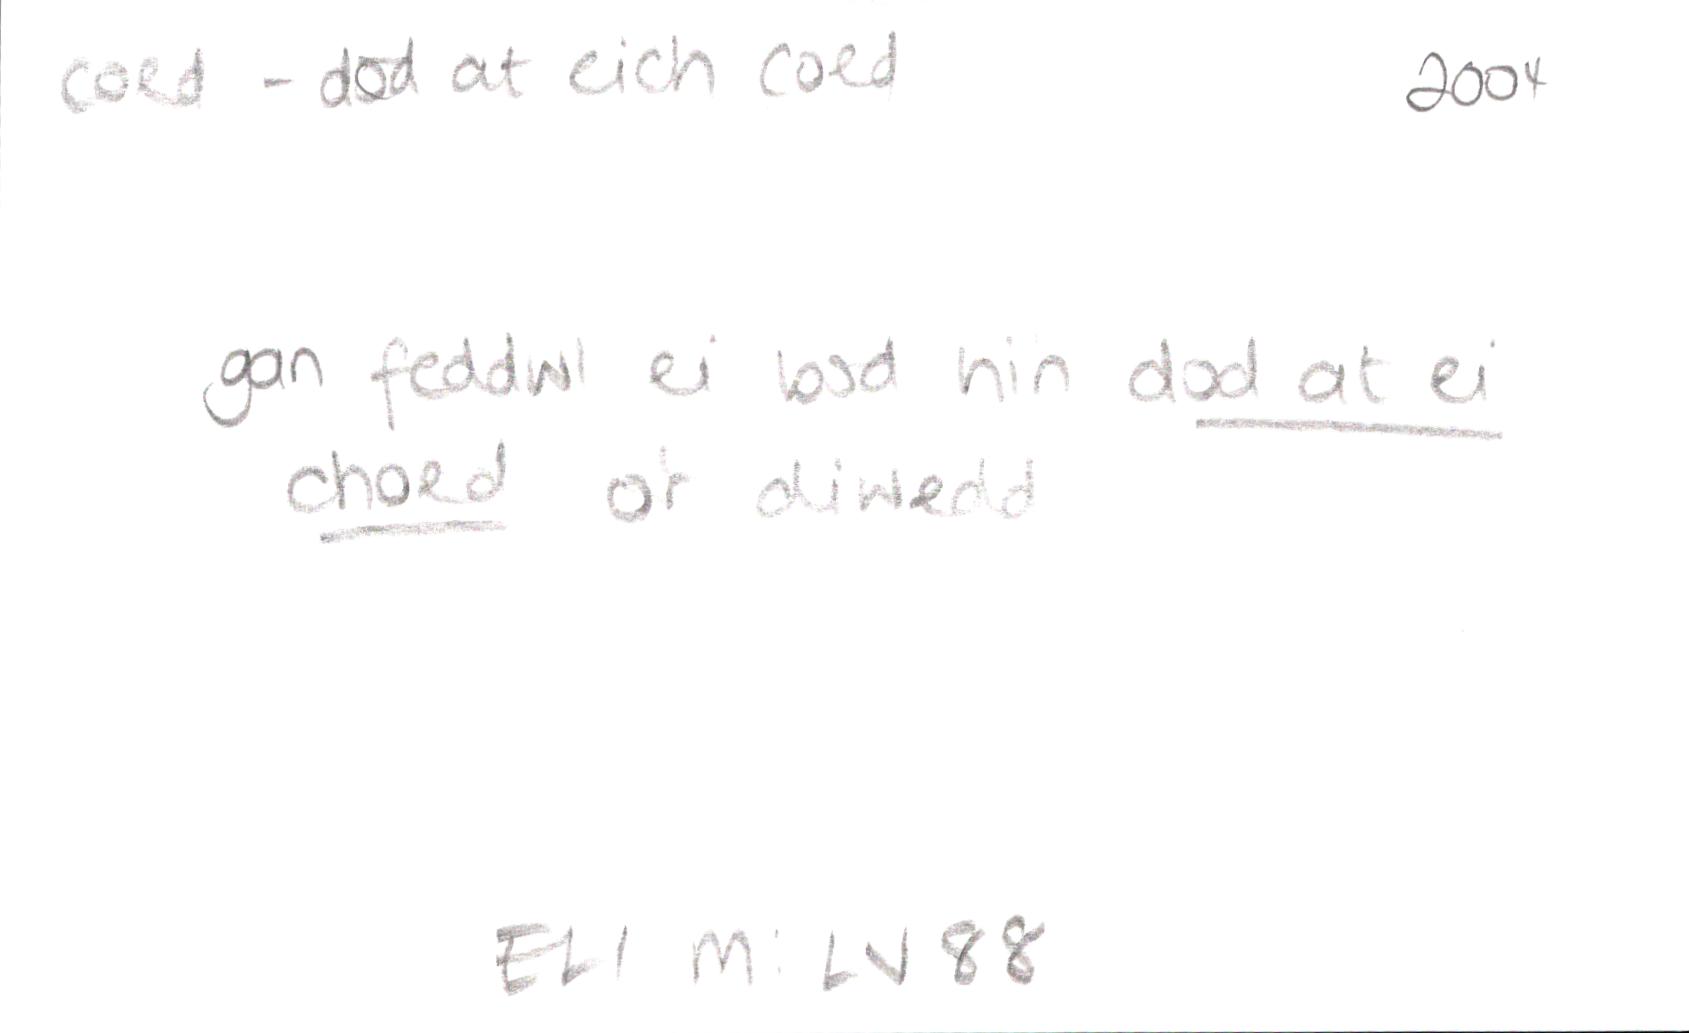 coed - dod at eich coed 2004
gan feddwl ei bod hin dod at ei
choed or diwedd
ELI M: LV 88